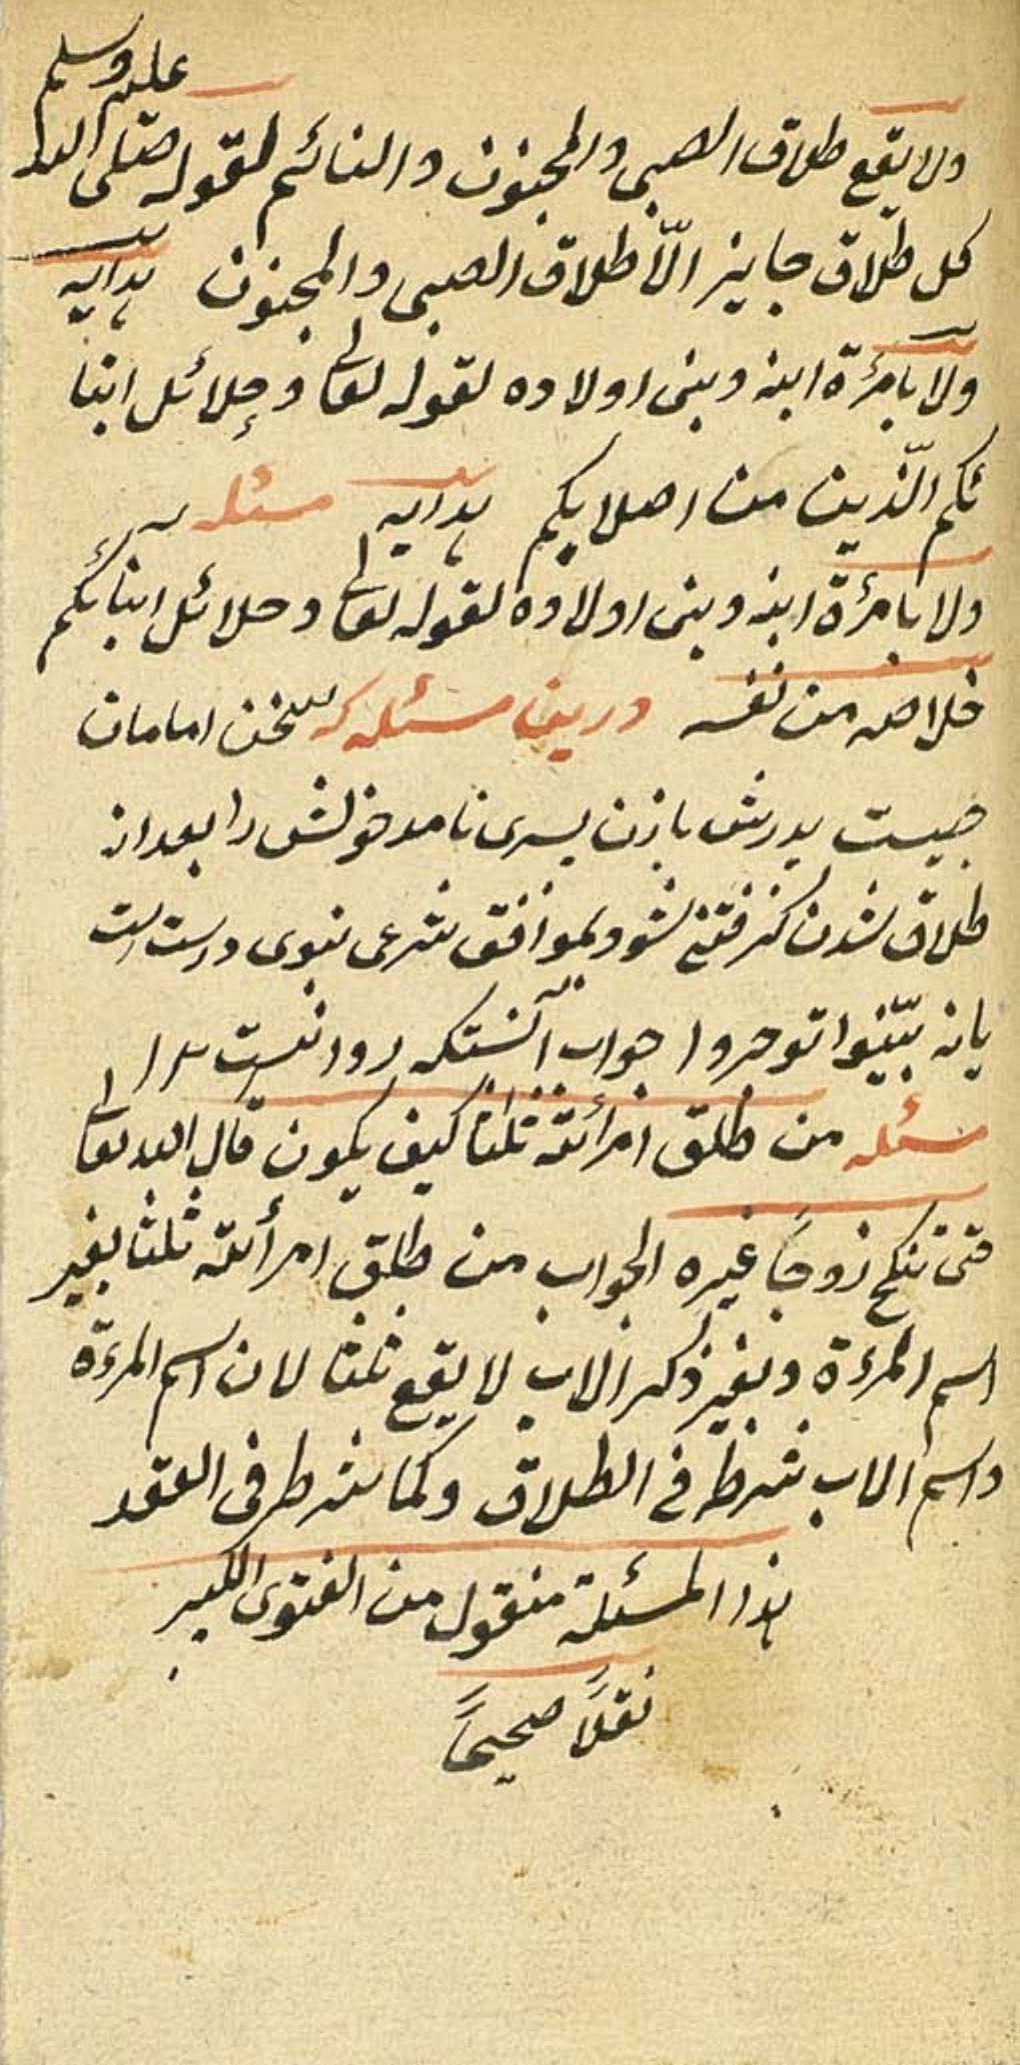 ولا يقع طلاق الصبى والمجنون والنائم لقوله صلى الله عليه وسلم
كل طلاق جايز الّا طلاق الصبى والمجنون هدايه
ولا بامرئة ابنه وبنى اولاده لقوله تعالى وحلائل ابنا
ئكم الّذين من اصلابكم هدايه مسئله
ولا بامرئة ابنه وبنى اولاده لقوله تعالى وحلائل ابنائكم
خلاصه من نفسه درين مسئله كه سخن امامان
چيست پدرش با زن پسرى نامدخولش را بعد از
طلاق شدن كفتنى شود بموافق شرعى نبوى درست است
يا نه بيّنوا توجروا جواب آنستكه روا نيست
مسئله من طلق امرأته ثلثا كيف يكون قال الله تعالى
حتى تنكح زوجاً غيره الجواب من طلق امرأته ثلثا بغير
اسم المرءة وبغير ذكر الاب لا يقع ثلثا لان اسم المرءة
واسم الاب شرط فى الطلاق وكما شرط فى العقد
هذا المسئلة منقول من الفتوى الكبير
نقلاً صحيحاً